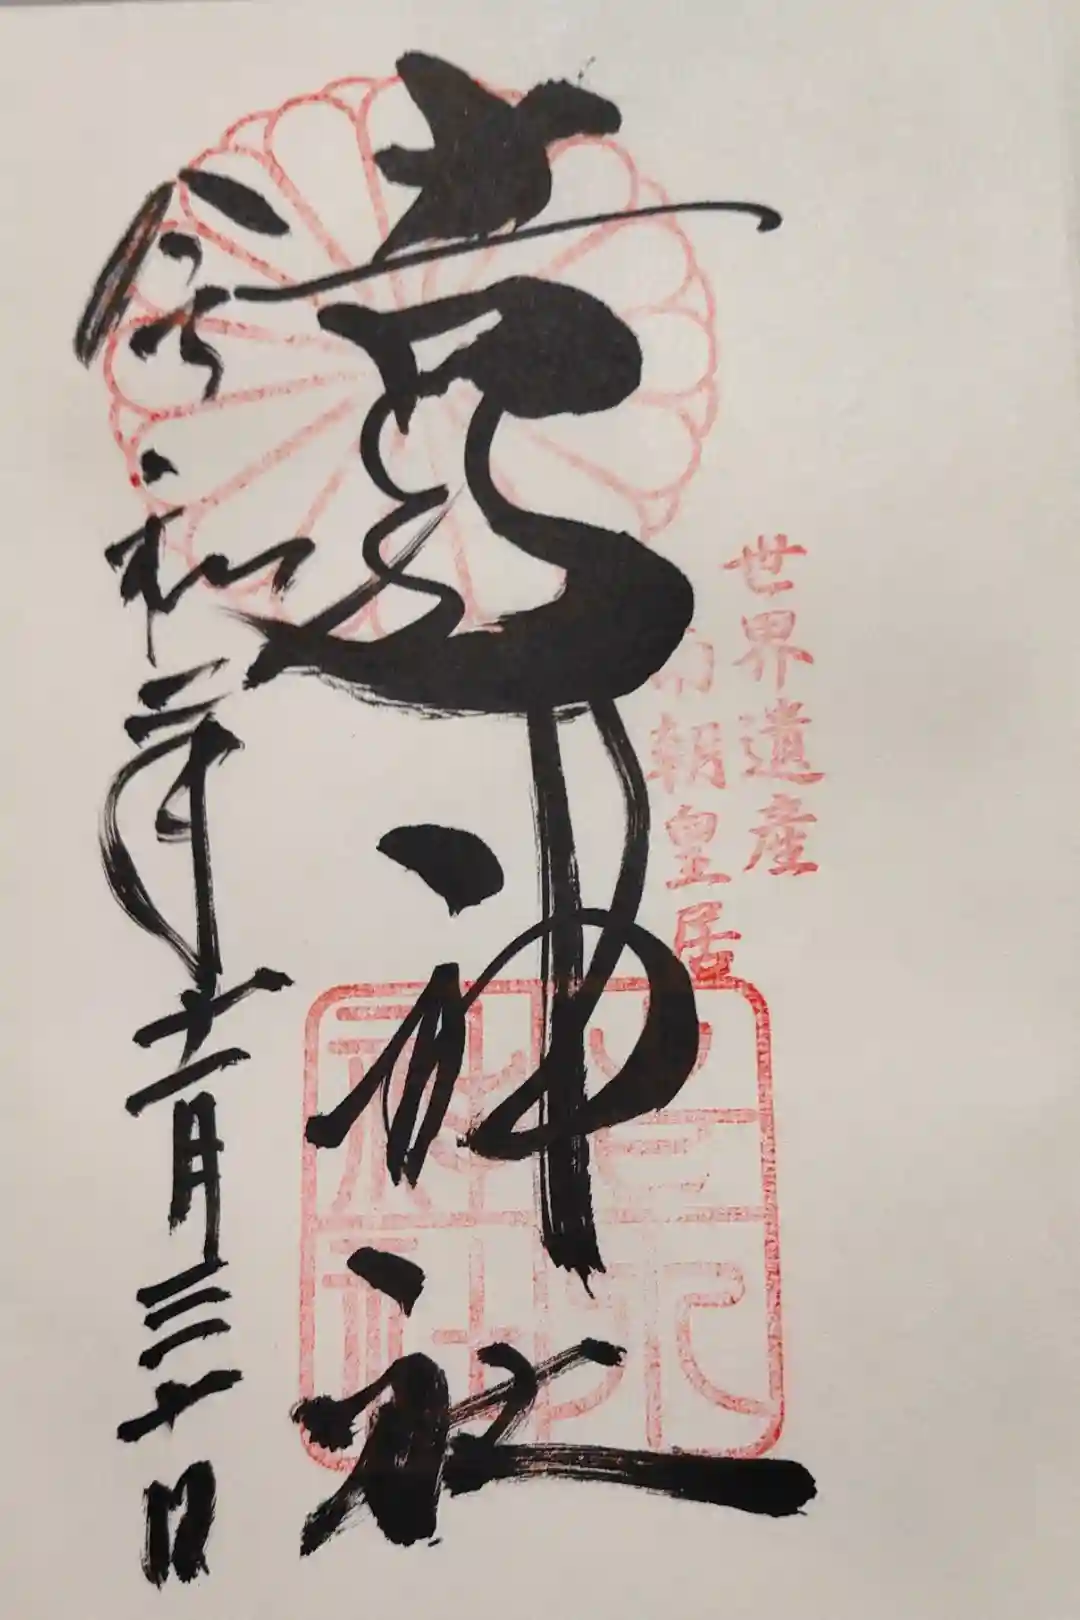 世界遺産
南朝皇居
吉水神社
吉水神社
令和二年十一月三十日